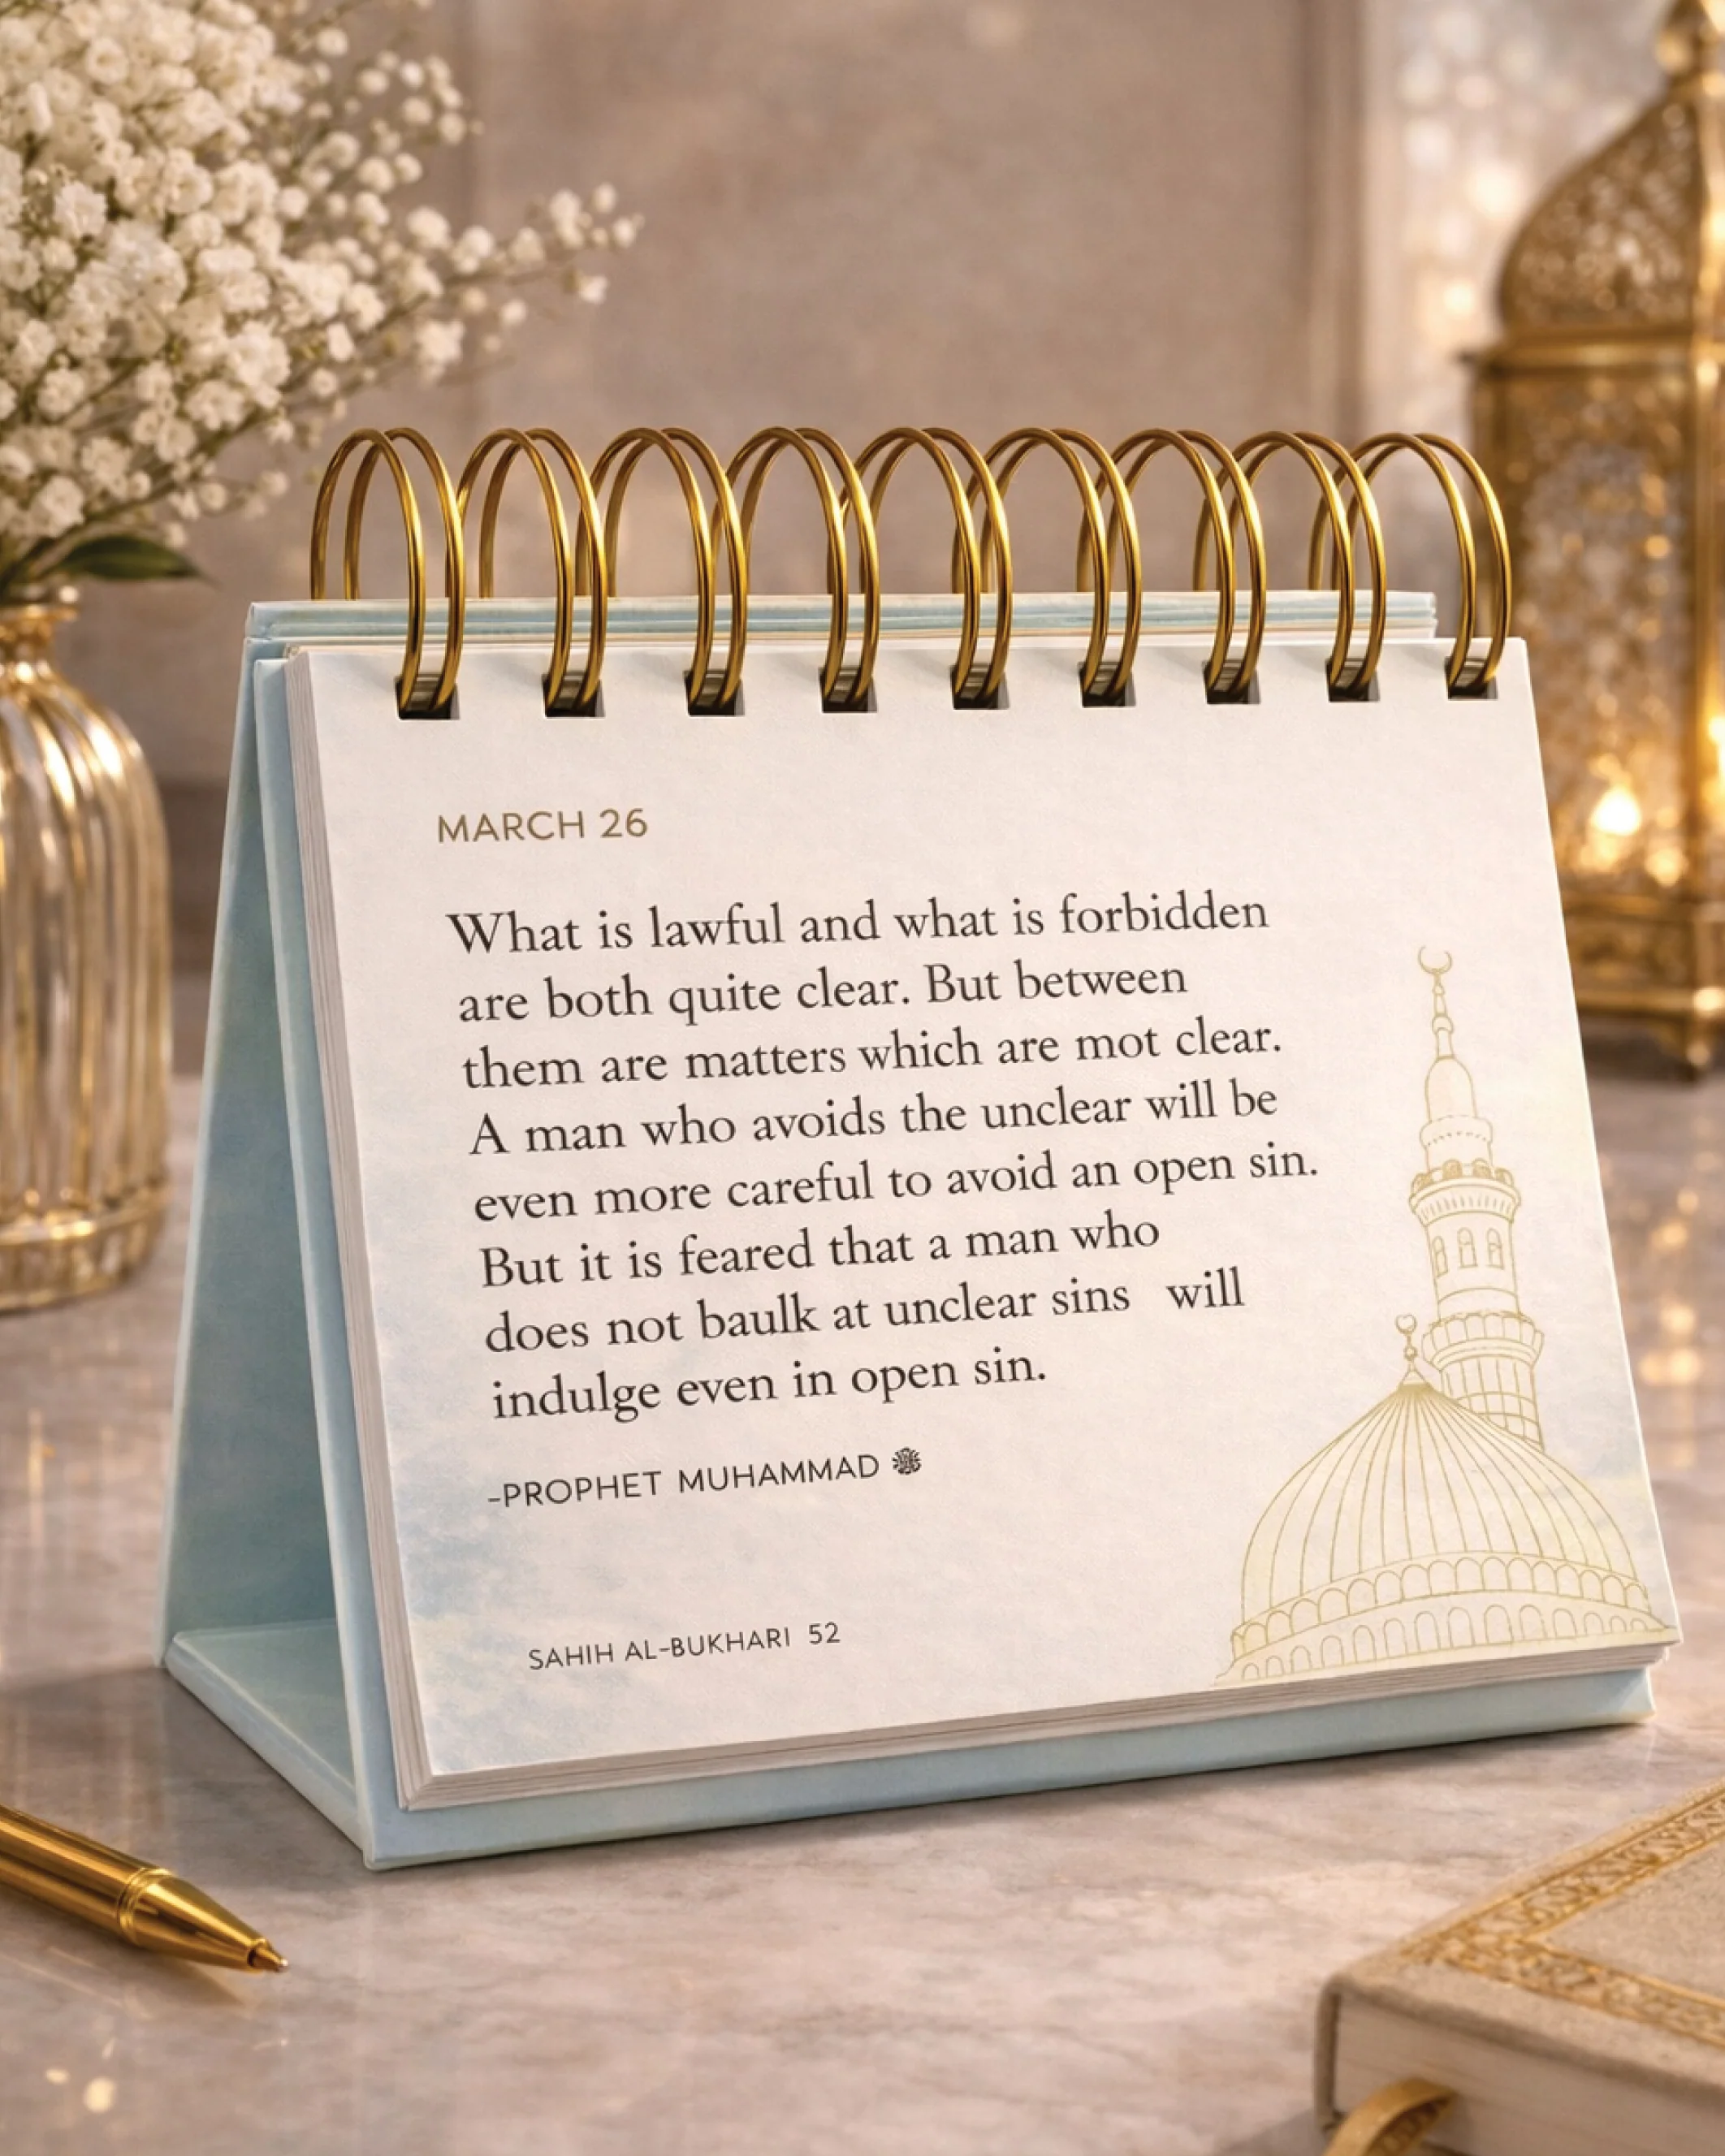 MARCH 26
What is lawful and what is forbidden
are both quite clear. But between
them are matters which are mot clear.
A man who avoids the unclear will be
even more careful to avoid an open sin.
But it is feared that a man who
does not baulk at unclear sins will
indulge even in open sin.
-PROPHET MUHAMMAD ﷺ
SAHIH AL-BUKHARI 52